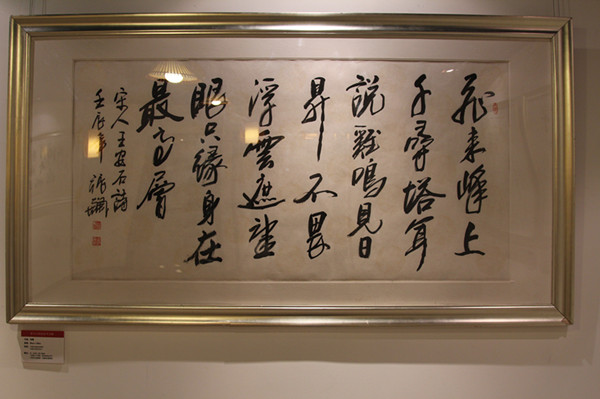 飛来峰上
千尋塔聞
說雞鳴見日
昇不畏
浮雲遮望
眼只緣身在
最高層
宋人王安石詩
壬辰年